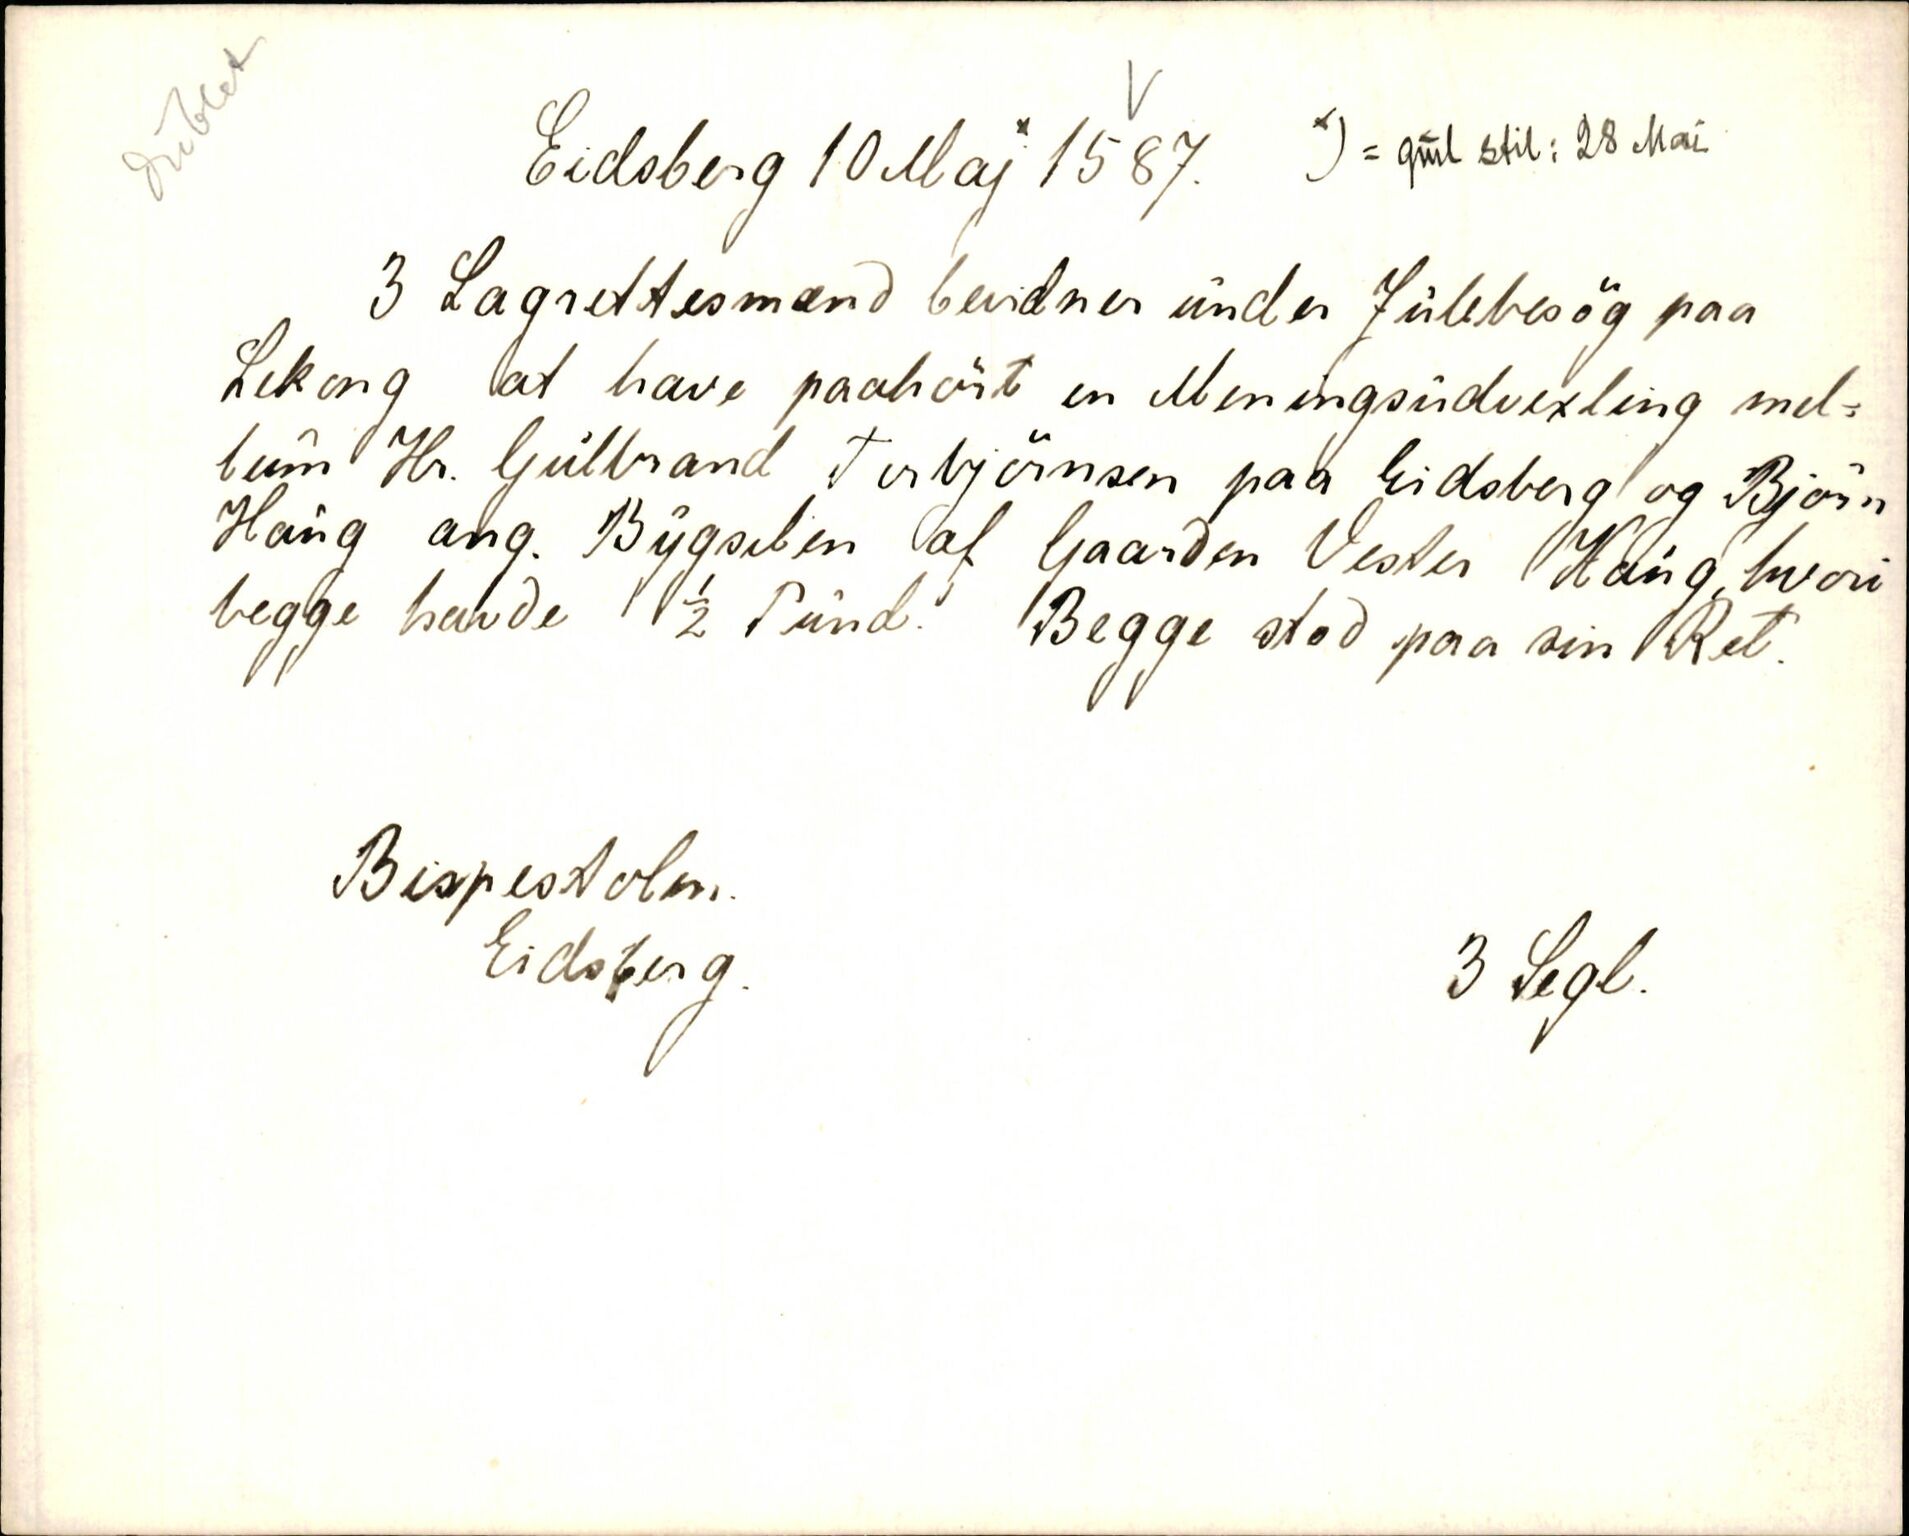 dublet
V
Eidsberg 10 Maj x 1587. x) = gml stil: 28 Mai
3 Lagrettesmænd bevidner under Julebesög paa
Lekong at have paahört en Meningsudvexling mel=
lem Hr. Gulbrand Torbjörnsen paa Eidsberg og Björn
Haug ang. Bygselen af Gaarden Vester Haug, hvori
begge havde 1/2 Pund. Begge stod paa sin Ret.
Bispestolen.
Eidsberg.
3 Segl.